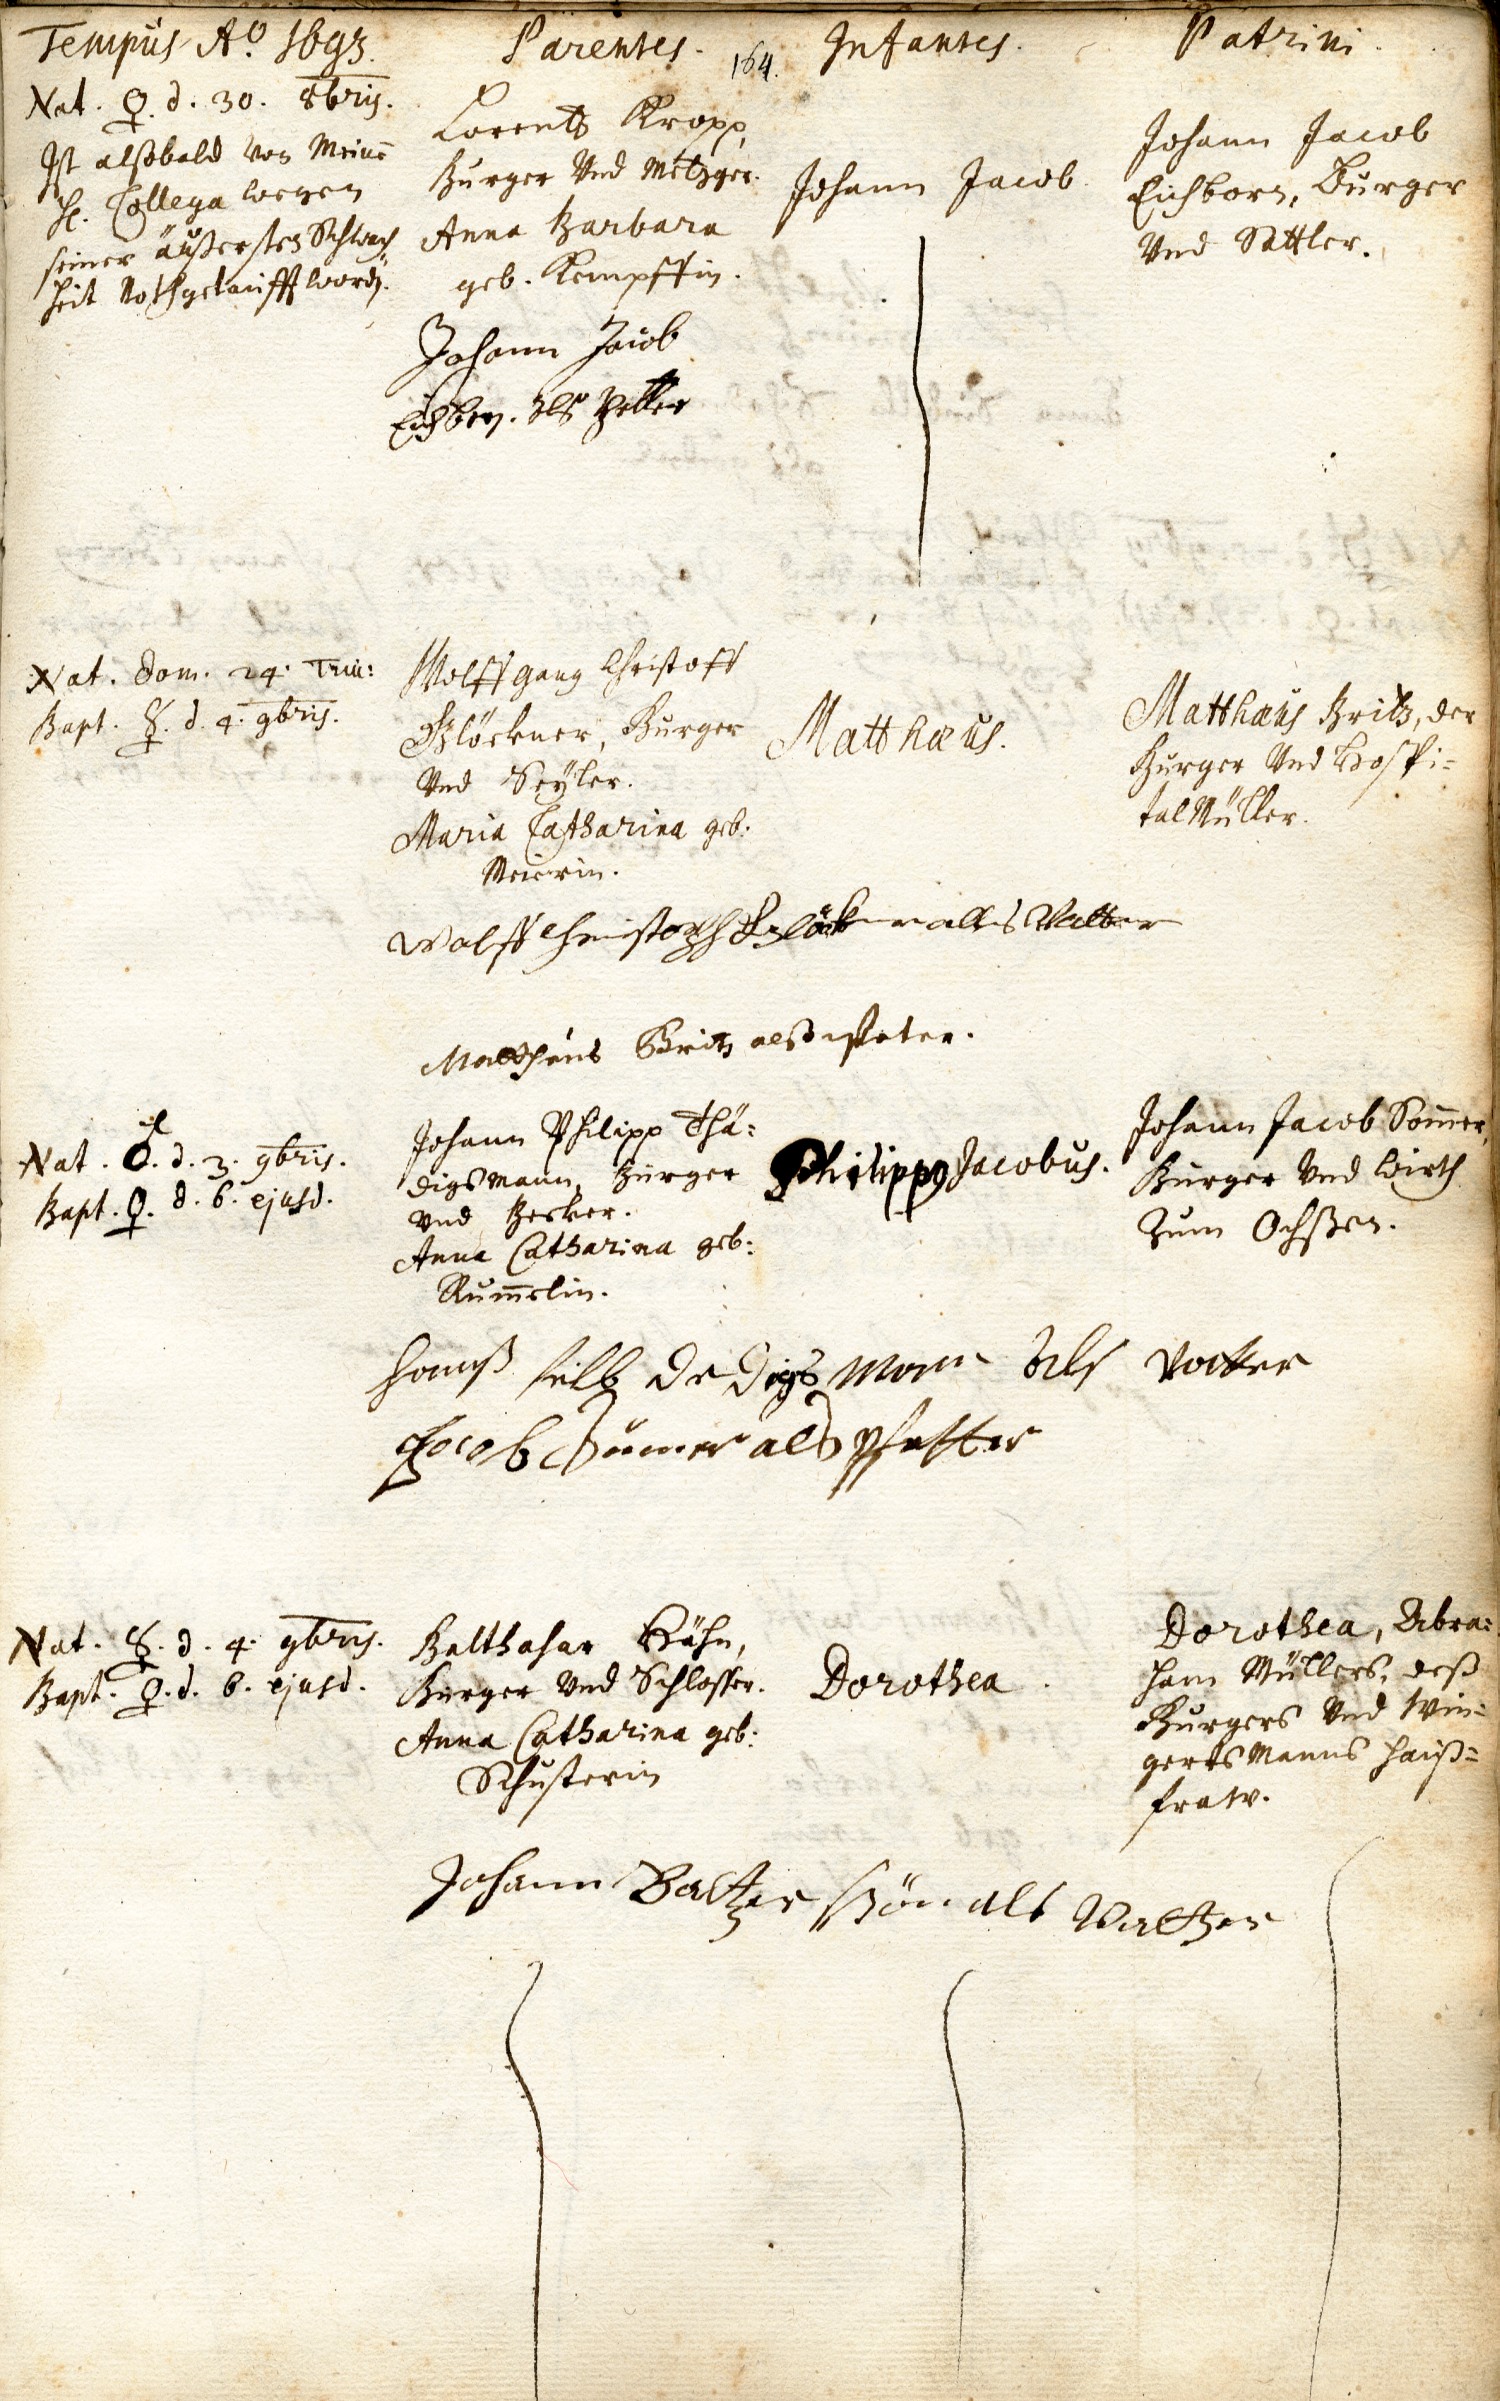 Tempus Aº 1693. Parentes. 164. Infantes. Patrini.
Nat. ♀. d. 30. 8bris.
Ist alsobald von meinē
H. Collega wegen
seiner äußersten Schwach
heit Nothgetaufft word.
Lorentz Kropp,
Burger Und Metzger.
Anna Barbara
geb. Kempffin.
Johann Jacob
Johann Jacob
Eichborn, Burger
Und Sattler.
Johann Jacob
Eichborn. Als Petter
Nat. Dom. 24. Trin:
Bapt. ☿. d. 4. 9bris.
Wolffgang Christoff
Glöckner, Burger
Und Seyler.
Maria Catharina geb:
Meierin.
Matthæus.
Matthæus Britz, der
Burger Und Hospi=
tal Müller.
Wolff Christoph Glöckner alls Vatter
Mattheus Britz alß Peter.
Nat. ♂. d. 3. 9bris.
Bapt. ♀. d. 6. ejusd.
Johann Philipp Thä=
digsmann, Burger
Und Becker.
Anna Catharina geb:
Rum̄elin.
Philippus Jacobus.
Johann Jacob Som̄er,
Burger Und Wirth
Zum Ochßen.
Hanß filb Dedigs Mann Als Vatter
Jacob Sumer als Pfetter
Nat. ☿. d. 4. 9bris.
Bapt. ♀. d. 6. ejusd.
Balthasar Hähn,
Burger Und Schlosser.
Anna Catharina geb:
Schusterin
Dorothea.
Dorothea, Abra=
ham Müllers, deß
Burgers Und Win=
gertsmanns Hauß=
fraw.
Johann Baltzer als Vatter